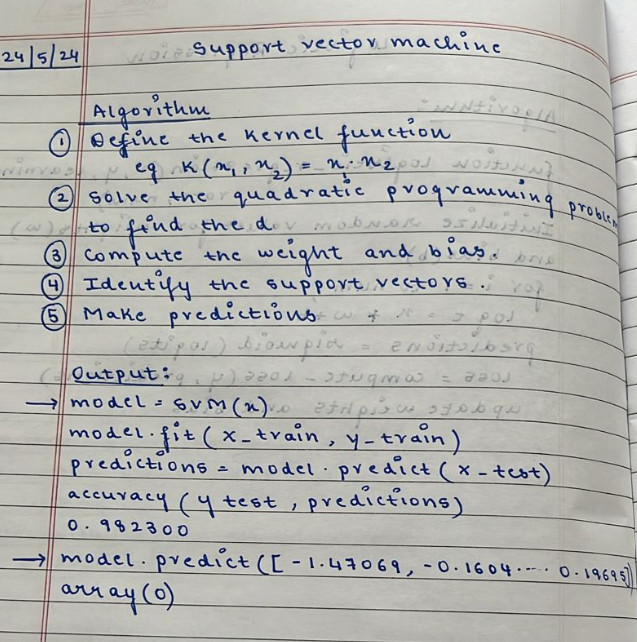 24/5/24
Support vector machine
Algorithm
① Define the kernel function
eg K(x₁, x₂) = x₁·x₂
② solve the quadratic programming problem
to find the d
③ compute the weight and bias.
④ Identify the support vectors.
⑤ Make predictions
Output:
→ model = SVM(x)
model.fit(x_train, y-train)
predictions = model.predict(x-test)
accuracy(y test, predictions)
0.982300
→ model.predict([-1.47069, -0.1604.... 0.19695])
array(0)